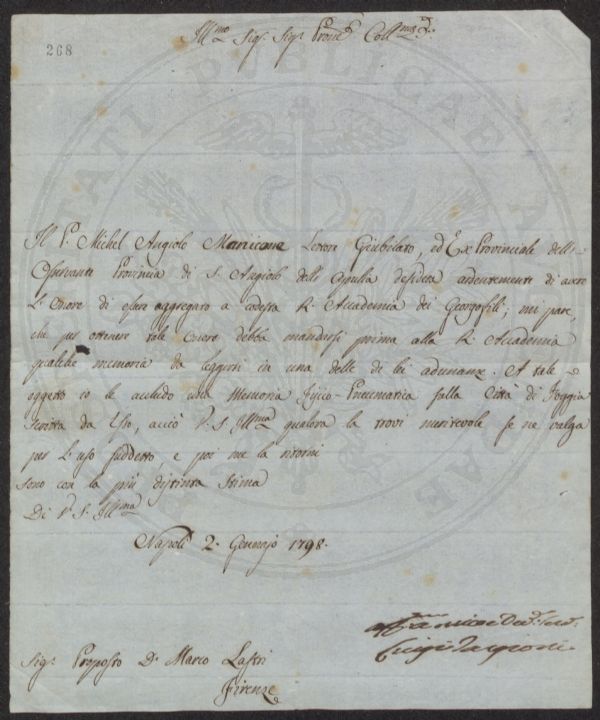 268
Ill.mo Sig.r Sig.r Pron.e Coll.mo
Il P. Michel Angiolo Manicone Lettore Giubilato, ed Ex Provinciale dell'
Osservante Provincia di S. Angiolo della Apulia desidera ardentemente di avere
L'Onore di essere aggregato a codesta R. Accademia dei Georgofili; mi pare,
che per ottenere tale Onore debba mandarsi prima alla R. Accademia
qualche memoria da leggersi in una delle di lei adunanze. A tale
oggetto io le accludo una Memoria Fisico-Pneumatica sulla Città di Foggia
scritta da Esso, acciò V. S. Ill.ma qualora la trovi meritevole se ne valga
per L'uso suddetto, e poi me la ritorni
sono con la più distinta Stima
Di V. S. Ill.ma
Napoli 2. Gennajo 1798.
Luigi Targioni
Sig.r Proposto D.r Marco Lastri
Firenze
PUBLICAE